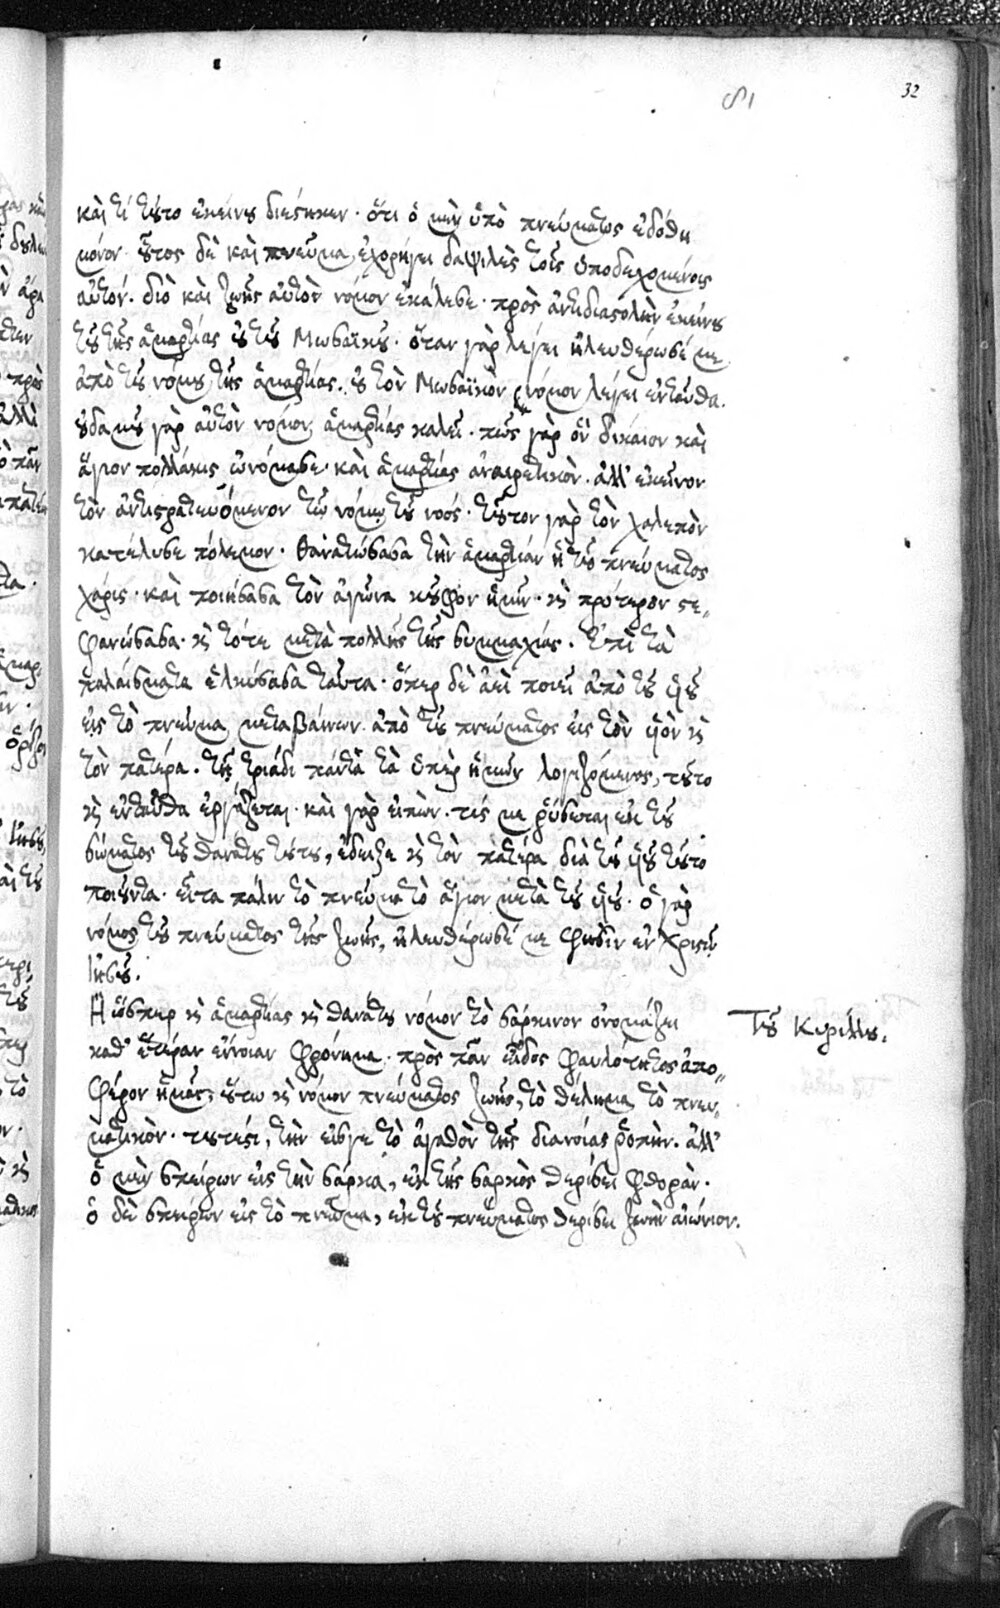 32
81
καὶ τί τοῦτο ἐκείνου διέστηκεν· ὅτι ὁ μὲν ὑπὸ πνεύματος ἐδόθη
μόνον· οὗτος δὲ καὶ πνεῦμα ἐχορήγει δαψιλὲς τοῖς ὑποδεχομένοις
αὐτόν. διὸ καὶ ζωῆς αὐτὸν νόμον ἐκάλεσε· πρὸς ἀντιδιαστολὴν ἐκείνου
τοῦ τῆς ἁμαρτίας οὐ τοῦ Μωσαϊκοῦ· ὅταν γὰρ λέγει ἠλευθέρωσέ με
ἀπὸ τοῦ νόμου τῆς ἁμαρτίας. οὐ τὸν Μωσαϊκὸν νόμον λέγει ἐνταῦθα.
οὐδαμοῦ γὰρ αὐτὸν νόμον ἁμαρτίας καλεῖ· πῶς γὰρ ὃν δίκαιον καὶ
ἅγιον πολλάκις ὠνόμασε· καὶ ἁμαρτίας ἀναιρετικὸν. ἀλλ' ἐκεῖνον
τὸν ἀντιστρατευόμενον τῷ νόμῳ τοῦ νοός· τοῦτον γὰρ τὸν χαλεπὸν
κατέλυσε πόλεμον· θανατώσασα τὴν ἁμαρτίαν ἡ τοῦ πνεύματος
χάρις· καὶ ποιήσασα τὸν ἀγῶνα κοῦφον ἡμῖν· καὶ πρότερον στε„
φανώσασα· καὶ τότε μετὰ πολλῆς τῆς συμμαχίας. Ἐπὶ τὰ
παλαίσματα ἑλκύσασα ταῦτα· ὅπερ δὲ ἀεὶ ποιεῖ ἀπὸ τοῦ υἱοῦ
εἰς τὸ πνεῦμα μεταβαίνων ἀπὸ τοῦ πνεύματος εἰς τὸν υἱὸν καὶ
τὸν πατέρα. τῇ τριάδι πάντα τὰ ὑπὲρ ἡμῶν λογιζόμενος, τοῦτο
καὶ ἐνταῦθα ἐργάζεται· καὶ γὰρ εἰπὼν· τίς με ῥύσεται ἐκ τοῦ
σώματος τοῦ θανάτου τούτου, ἔδειξε καὶ τὸν πατέρα διὰ τοῦ υἱοῦ τοῦτο
ποιοῦντα· εἶτα πάλιν τὸ πνεῦμα τὸ ἅγιον μετὰ τοῦ υἱοῦ· ὁ γὰρ
νόμος τοῦ πνεύματος τῆς ζωῆς, ἠλευθέρωσέ με φησὶν ἐν Χριστῷ
Ἰησοῦ.
Ἢ ὥσπερ καὶ ἁμαρτίας καὶ θανάτου νόμον τὸ σάρκινον ὀνομάζει
καθ' ἑτέραν ἔννοιαν φρόνημα· πρὸς πᾶν εἶδος φαυλότητος ἀπο„
φέρον ἡμᾶς, οὕτω καὶ νόμον πνεύματος ζωῆς, τὸ θέλημα τὸ πνευ„
ματικὸν· τουτέστι, τὴν εἴσγε τὸ ἀγαθὸν τῆς διανοίας ῥοπὴν. ἀλλ'
ὁ μὲν σπείρων εἰς τὴν σάρκα, ἐκ τῆς σαρκὸς θερίσει φθορὰν.
ὁ δὲ σπείρων εἰς τὸ πνεῦμα, ἐκ τοῦ πνεύματος θερίσει ζωὴν αἰώνιον.
Τοῦ Κυρίλλου.